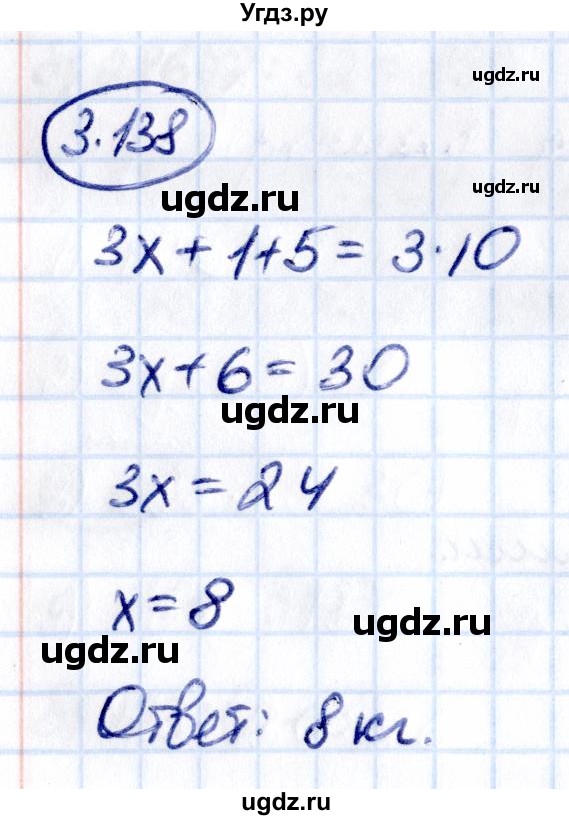 Угдз.ру
ugdz.ru
3.138
ugdz.ru
3x + 1 + 5 = 3·10
3x + 6 = 30
ugdz.ru
3x = 24
x = 8
ugdz.ru
ugdz.ru
Ответ: 8 кг.
ugdz.ru